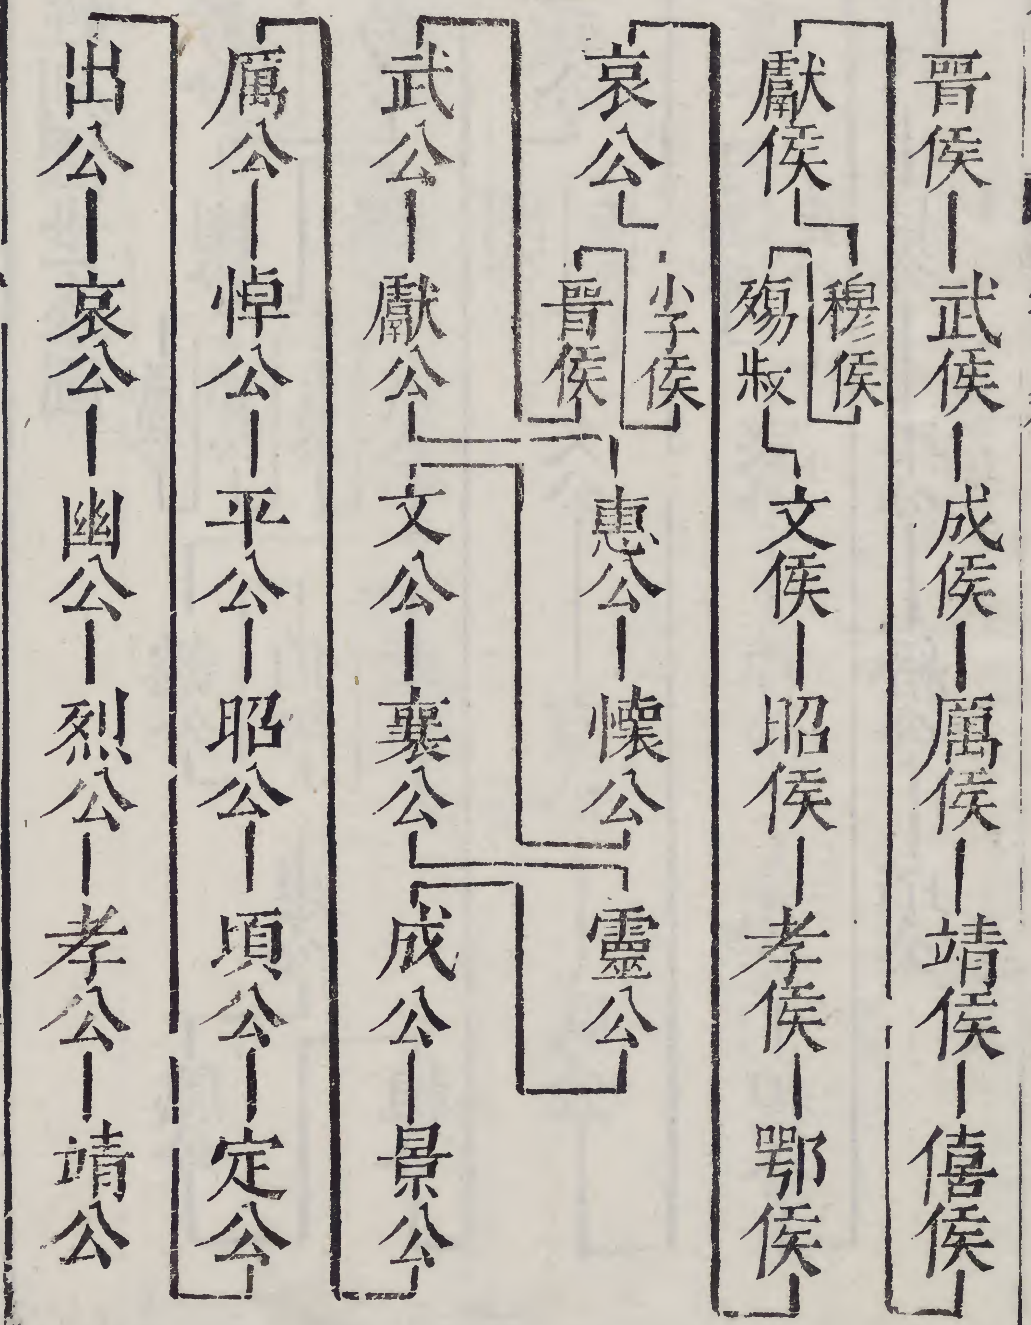 晉侯 武侯 成侯 厲侯 靖侯 僖侯
獻侯 穆侯 殤叔 文侯 昭侯 孝侯 鄂侯
哀公 小子侯 晉侯 惠公 懷公 靈公
武公 獻公 文公 襄公 成公 景公
厲公 悼公 平公 昭公 頃公 定公
出公 哀公 幽公 烈公 孝公 靖公